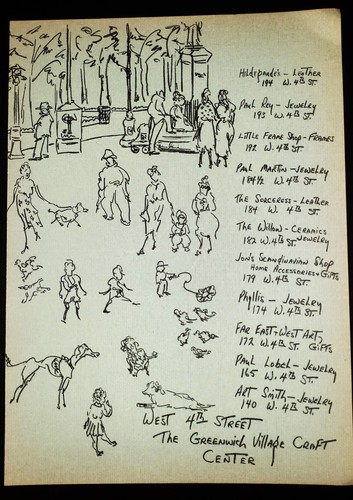 Hildebrande's – Leather
194 W. 4th St.
Paul Roy – Jewelry
193 W. 4th St.
Little Frame Shop – Frames
192 W. 4th St.
Paul Martin – Jewelry
184½ W. 4th St.
The Sorceress – Leather
184 W. 4th St.
The Willow – Ceramics
Jewelry
182 W. 4th St.
Jon's Scandinavian Shop
Home Accessories + Gifts
179 W. 4th St.
Phyllis – Jewelry
174 W. 4th St.
Far East + West Arts
Gifts
172 W. 4th St.
Paul Lobel – Jewelry
165 W. 4th St.
Art Smith – Jewelry
140 W. 4th St.
West 4th Street
The Greenwich Village Craft
Center